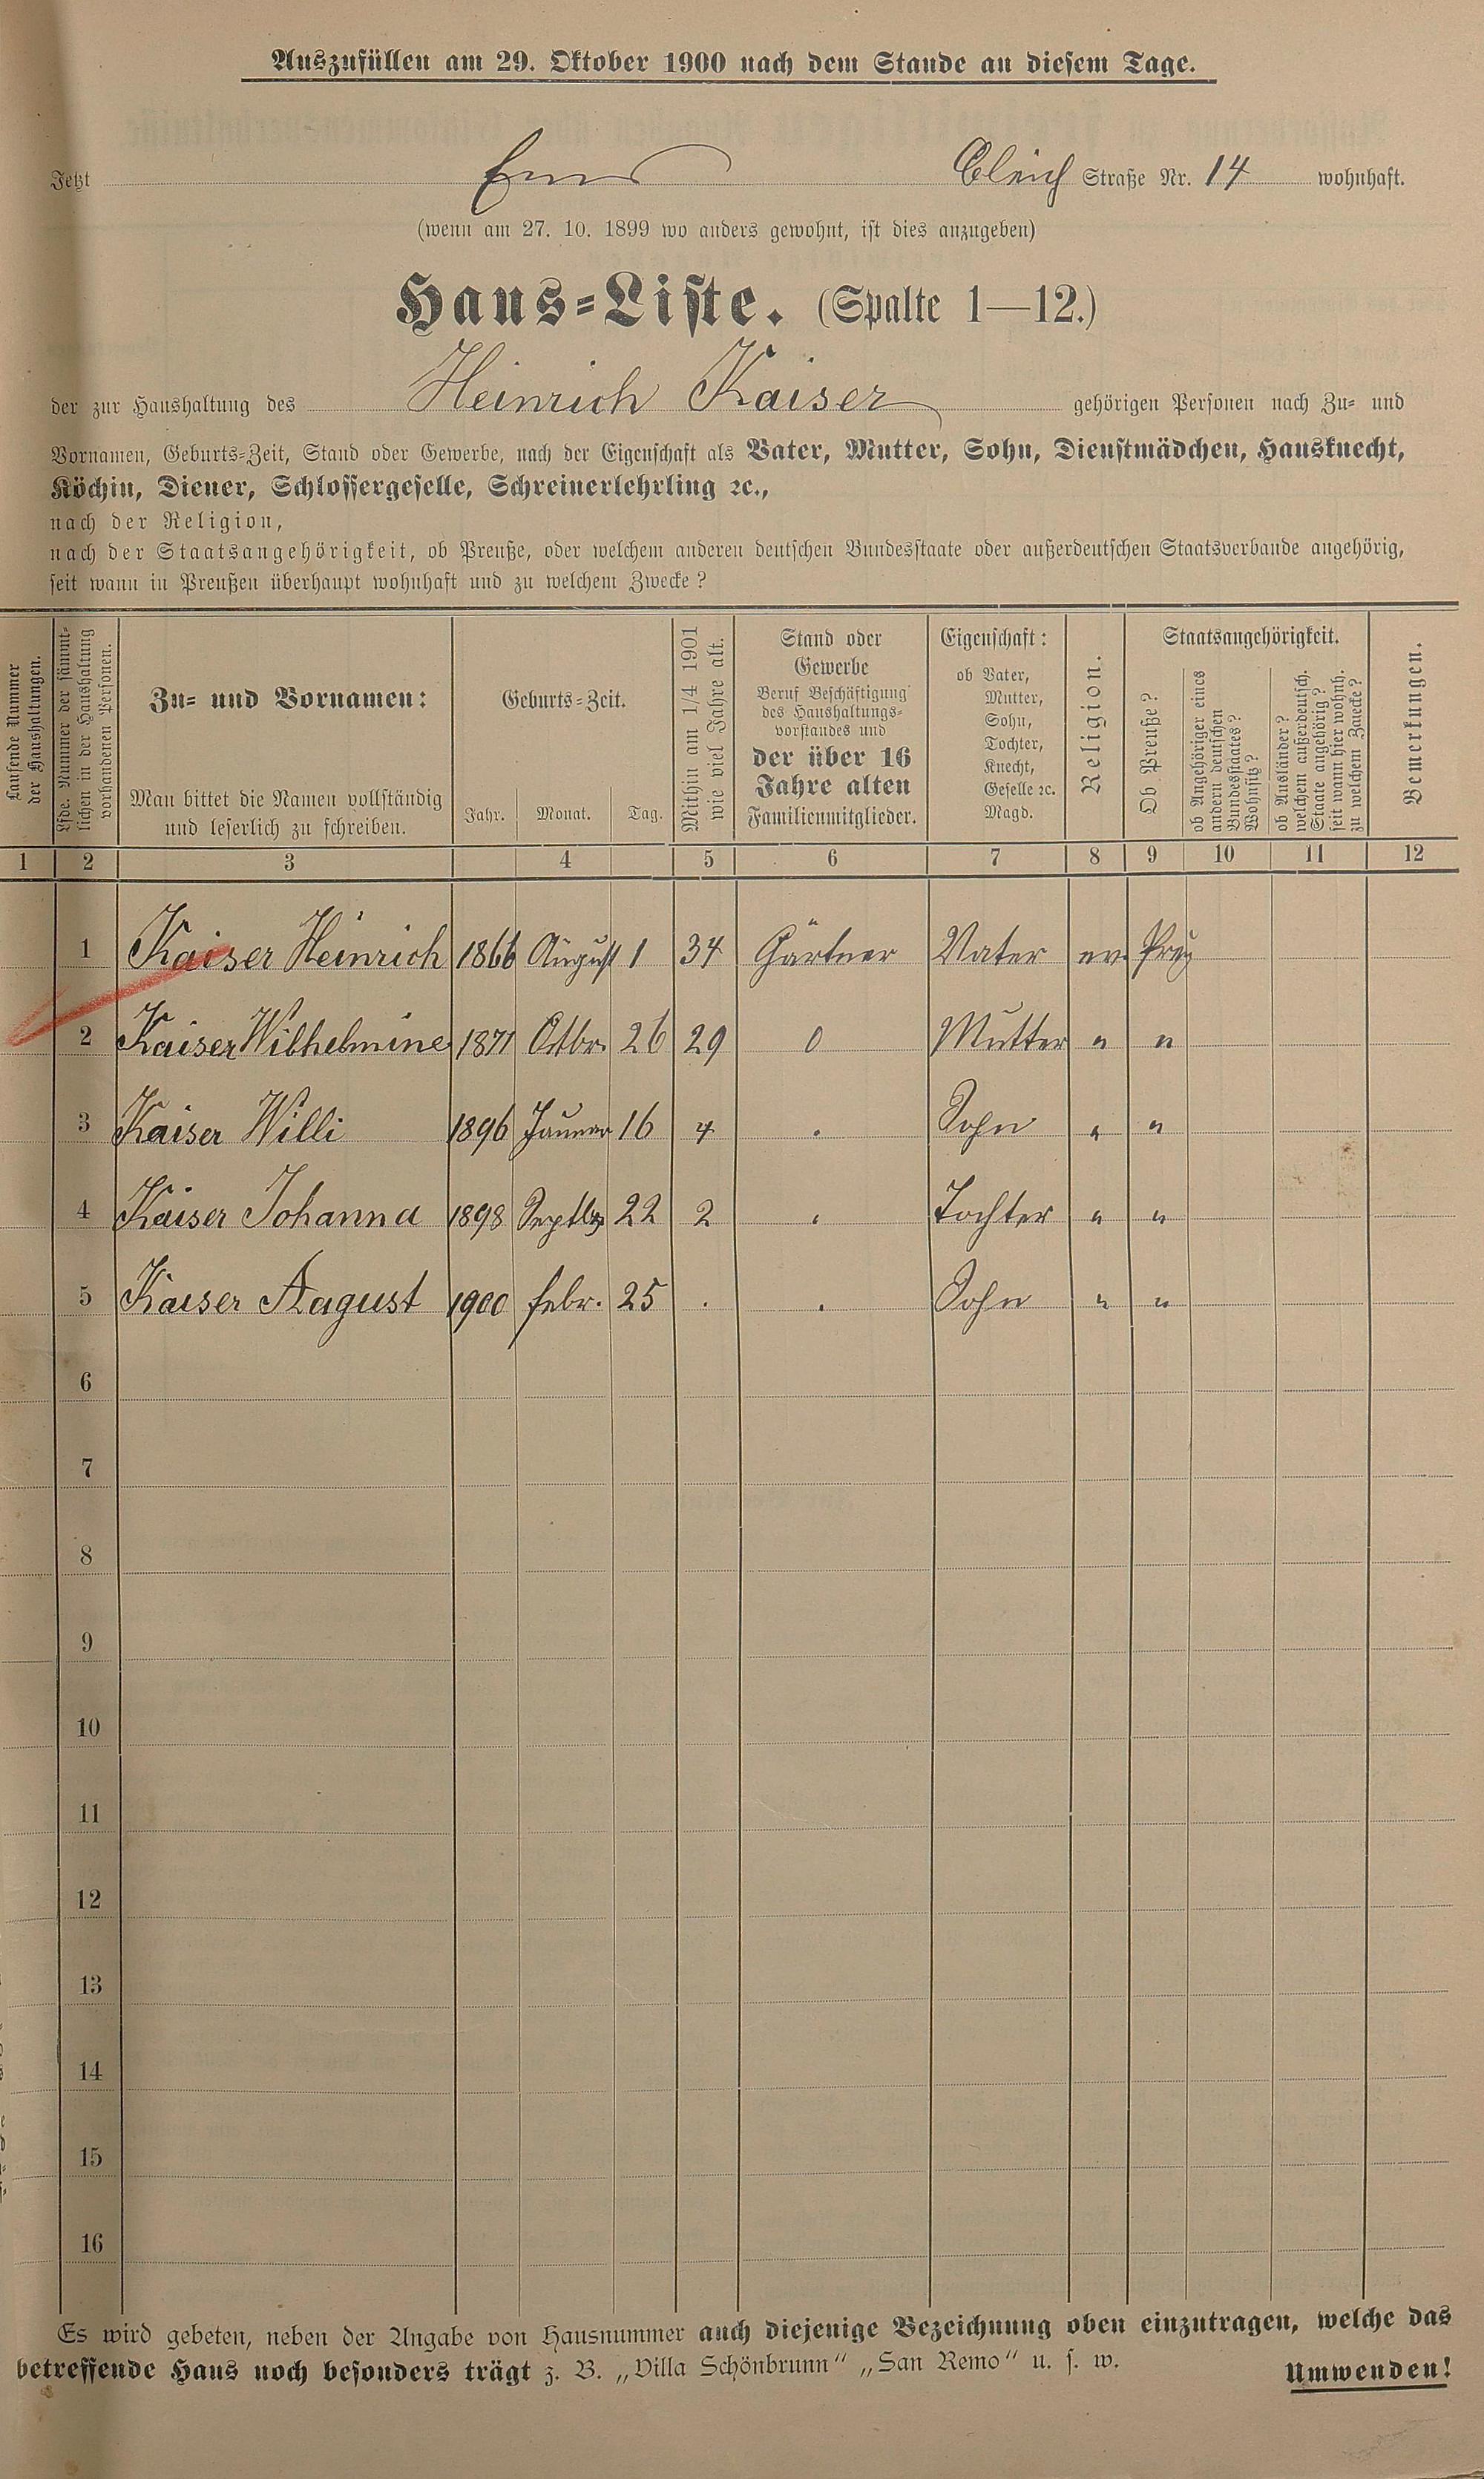 Auszufüllen am 29. Oktober 1900 nach dem Stande an diesem Tage.
Jetzt Ems Bleich Straße Nr. 14 wohnhaft.
(wenn am 27. 10. 1899 wo anders gewohnt, ist dies anzugeben)
Haus-Liste. (Spalte 1—12.)
der zur Haushaltung des Heinrich Kaiser gehörigen Personen nach Zu- und
Vornamen, Geburts-Zeit, Stand oder Gewerbe, nach der Eigenschaft als Vater, Mutter, Sohn, Dienstmädchen, Hausknecht,
Köchin, Diener, Schlossergeselle, Schreinerlehrling ꝛc.,
nach der Religion,
nach der Staatsangehörigkeit, ob Preuße, oder welchem anderen deutschen Bundesstaate oder außerdeutschen Staatsverbande angehörig,
seit wann in Preußen überhaupt wohnhaft und zu welchem Zwecke?
Laufende Nummer
der Haushaltungen.
Lfde. Nummer der sämmt-
lichen in der Haushaltung
vorhandenen Personen.
Zu- und Vornamen:
Man bittet die Namen vollständig
und leserlich zu schreiben.
Geburts-Zeit.
Jahr. Monat. Tag.
Mithin am 1/4 1901
wie viel Jahre alt.
Stand oder
Gewerbe
Beruf Beschäftigung
des Haushaltungs-
vorstandes und
der über 16
Jahre alten
Familienmitglieder.
Eigenschaft:
ob Vater,
Mutter,
Sohn,
Tochter,
Knecht,
Geselle ꝛc.
Magd.
Religion.
Staatsangehörigkeit.
Ob Preuße?
ob Angehöriger eines
andern deutschen
Bundesstaates?
Wohnsitz?
ob Ausländer?
welchem außerdeutsch.
Staate angehörig?
seit wann hier wohnh.
zu welchem Zwecke?
Bemerkungen.
1 2 3 4 5 6 7 8 9 10 11 12
1 Kaiser Heinrich 1866 August 1 34 Gärtner Vater ev. Preuß
2 Kaiser Wilhelmine 1871 Octbr. 26 29 0 Mutter " "
3 Kaiser Willi 1896 Januar 16 4 . Sohn " "
4 Kaiser Johanna 1898 Septbr 22 2 . Tochter " "
5 Kaiser August 1900 febr. 25 . . Sohn " "
6
7
8
9
10
11
12
13
14
15
16
Es wird gebeten, neben der Angabe von Hausnummer auch diejenige Bezeichnung oben einzutragen, welche das
betreffende Haus noch besonders trägt z. B. „Villa Schönbrunn“ „San Remo“ u. s. w.
Umwenden!